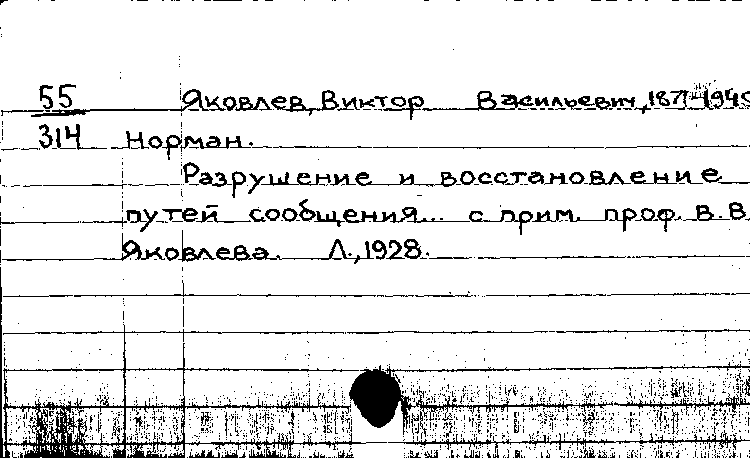 55 Яковлев, Виктор Васильевич, 1871-1945
314 Норман.
Разрушение и восстановление
путей сообщения... с прим. проф. В.В.
Яковлева. Л., 1928.